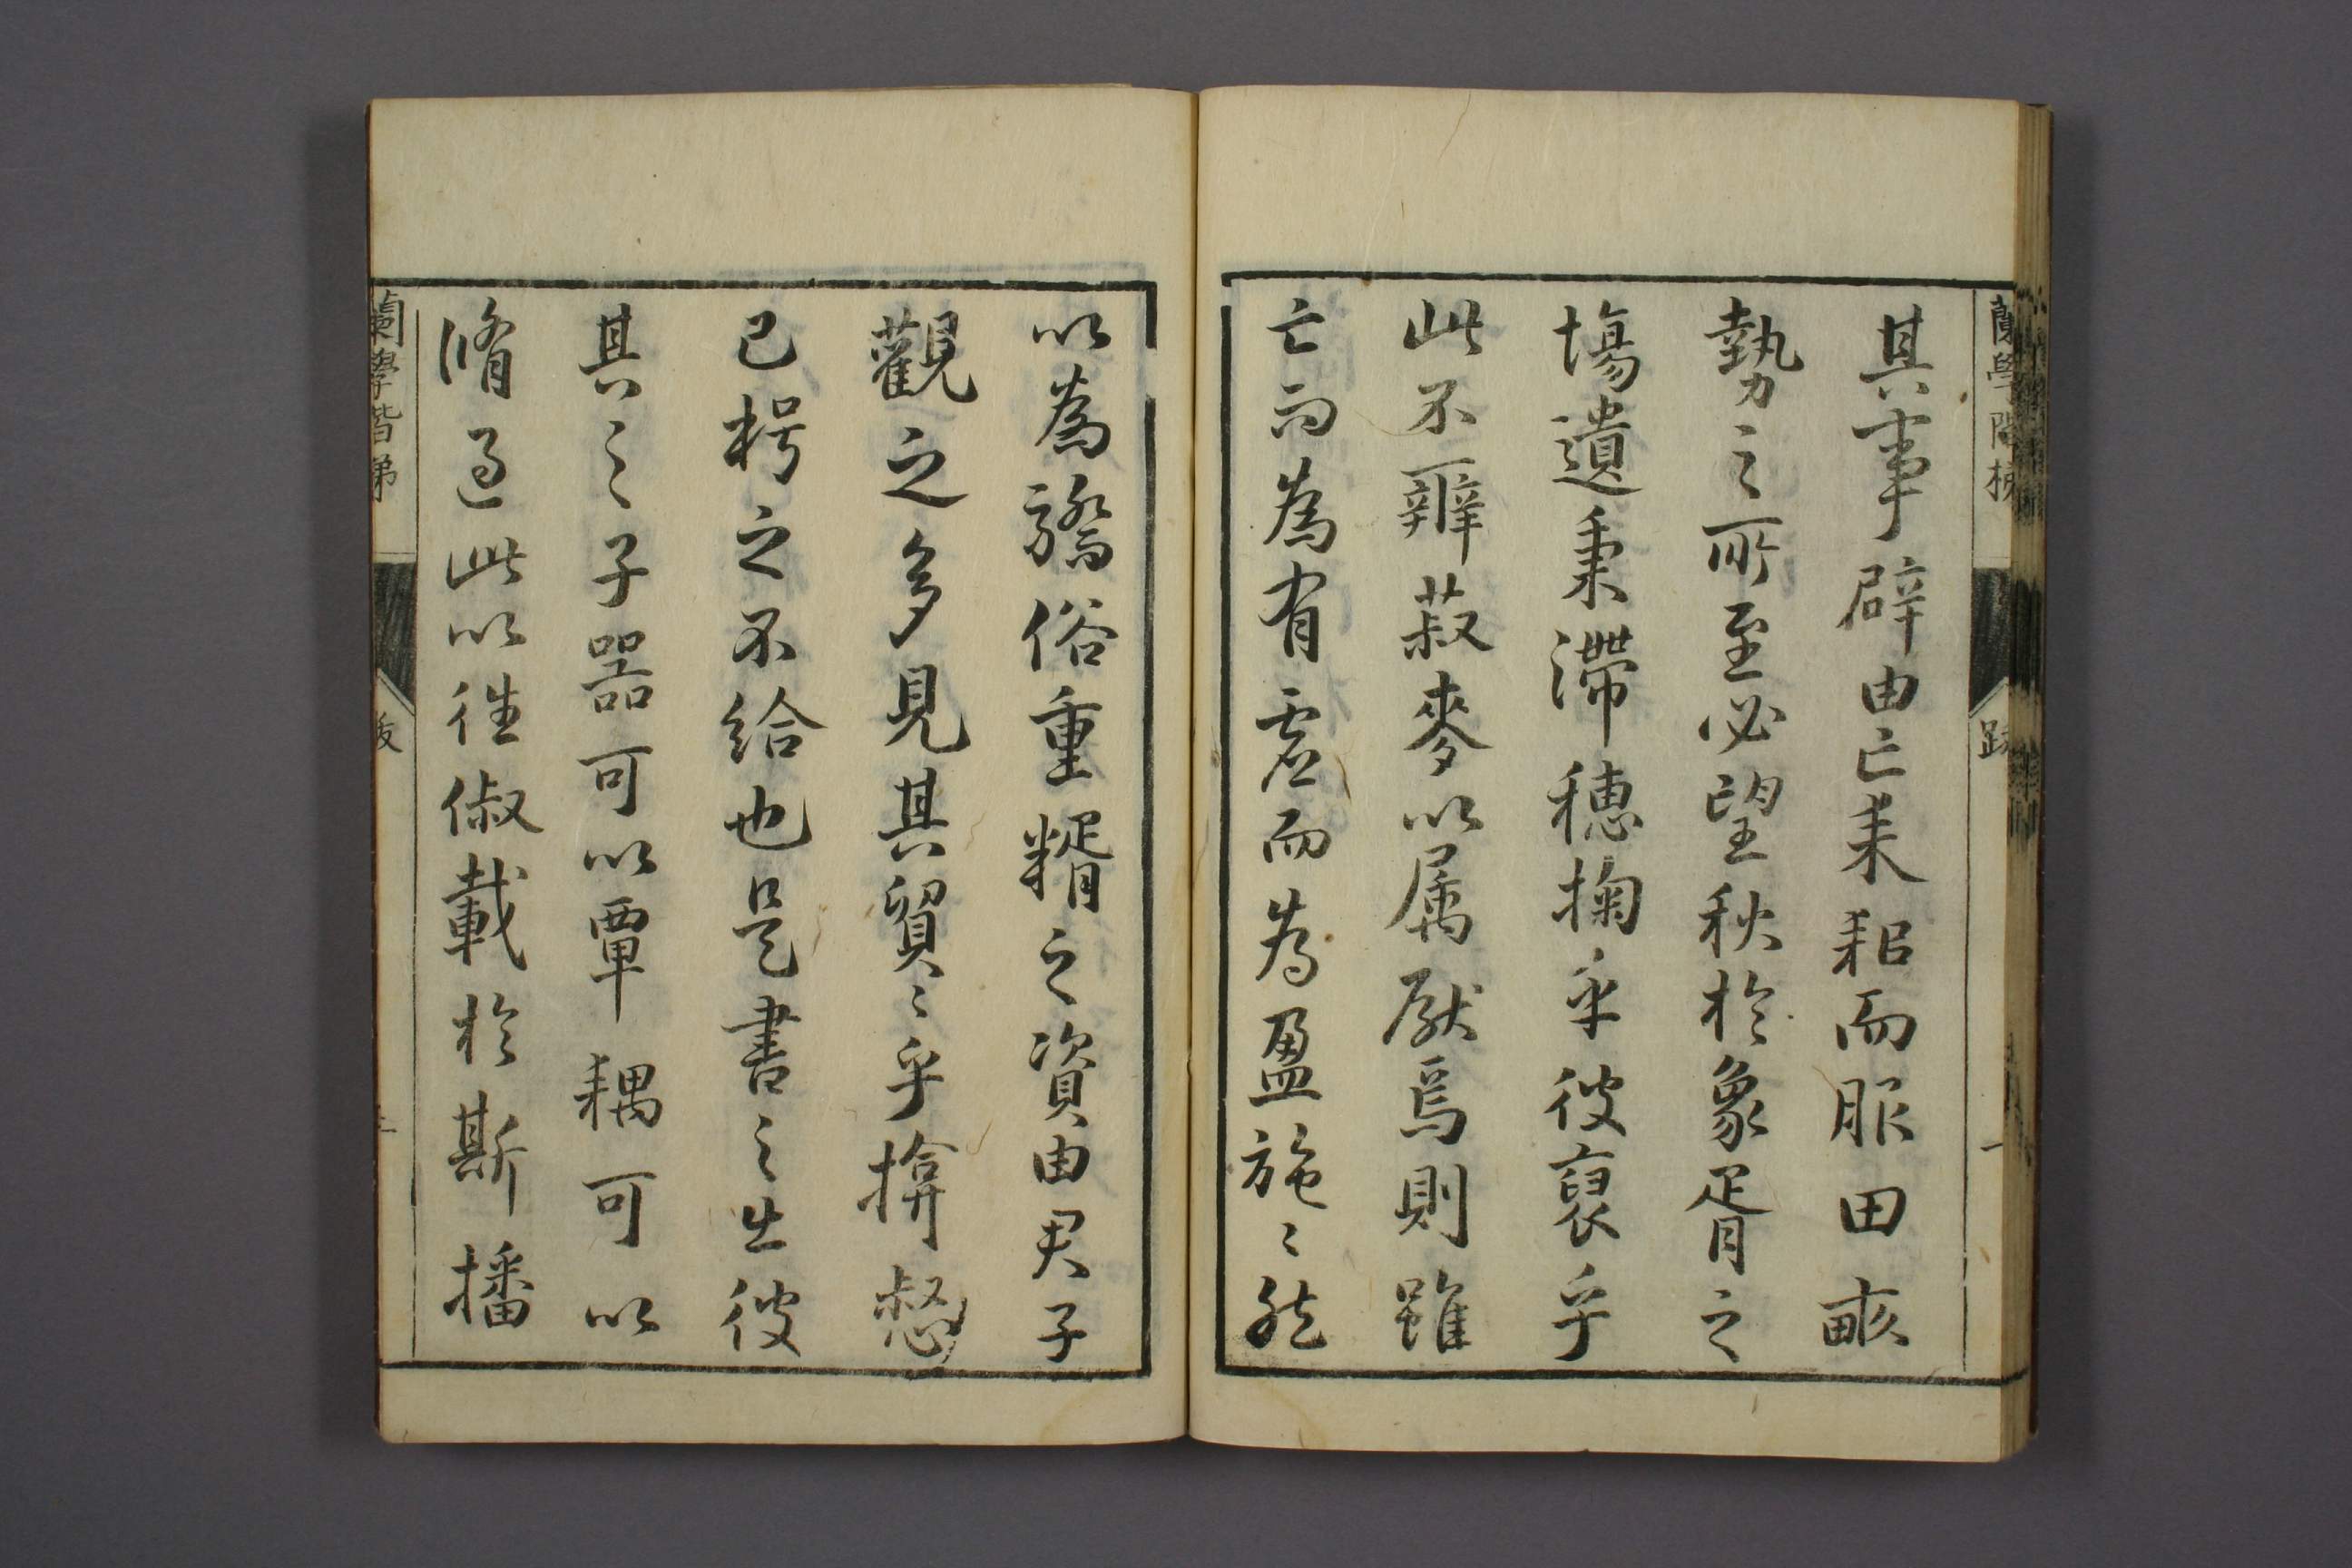 蘭學階梯 跋 一
其事辟由亡耒耜而服田畝
勢之所至必望秋於象胥之
塲遺秉滯穗掬乎彼裒乎
此不辨菽麥以属厭焉則雖
亡而為有虚而為盈施〻然
以為譎俗重糈之資由君子
觀之多見其貿〻乎揜慙
已枵之不給也是書之出彼
其之子器可以覃耦可以
脩過此以往俶載於斯播
蘭學階梯 跋